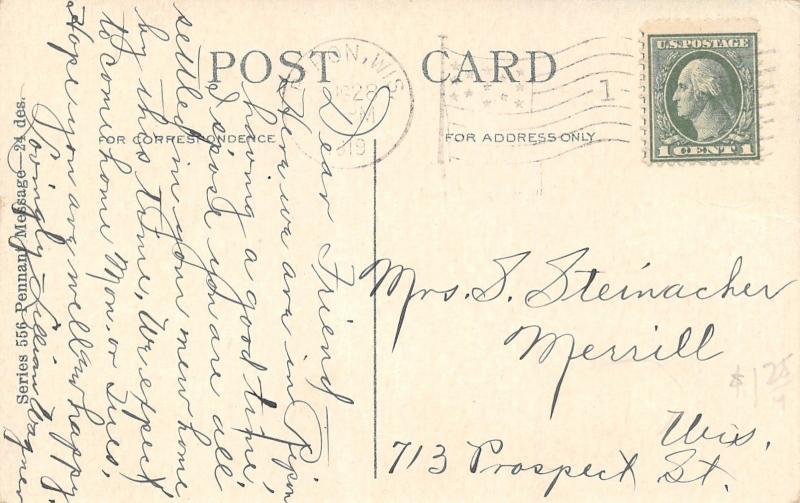 POST CARD
FOR CORRESPONDENCE
FOR ADDRESS ONLY
RIPON, WIS.
28
PM
1919
1
U.S. POSTAGE
1 CENT 1
Dear Friend
Here we are in Ripon,
having a good time,
I s'pose you are all
settled in your new home
by this time, We expect
to come home Mon. or Tues.
Hope you are well and happy
Lovingly Lillian Wagner
Mrs. S. Steinacher
Merrill
Wis.
713 Prospect St.
$1 25
Series 556 Pennant Message—24 des.